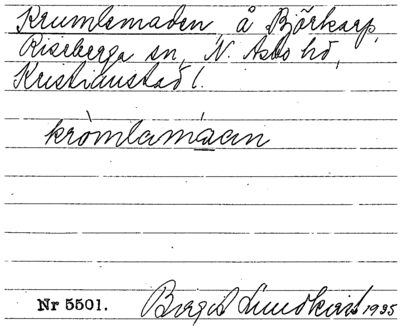 Krumlemaden, å Björkarp,
Riseberga sn, N. Åsbo hd,
Kristianstad l.
kròmlamáan
Nr 5501. Birgit Lundkvist 1935